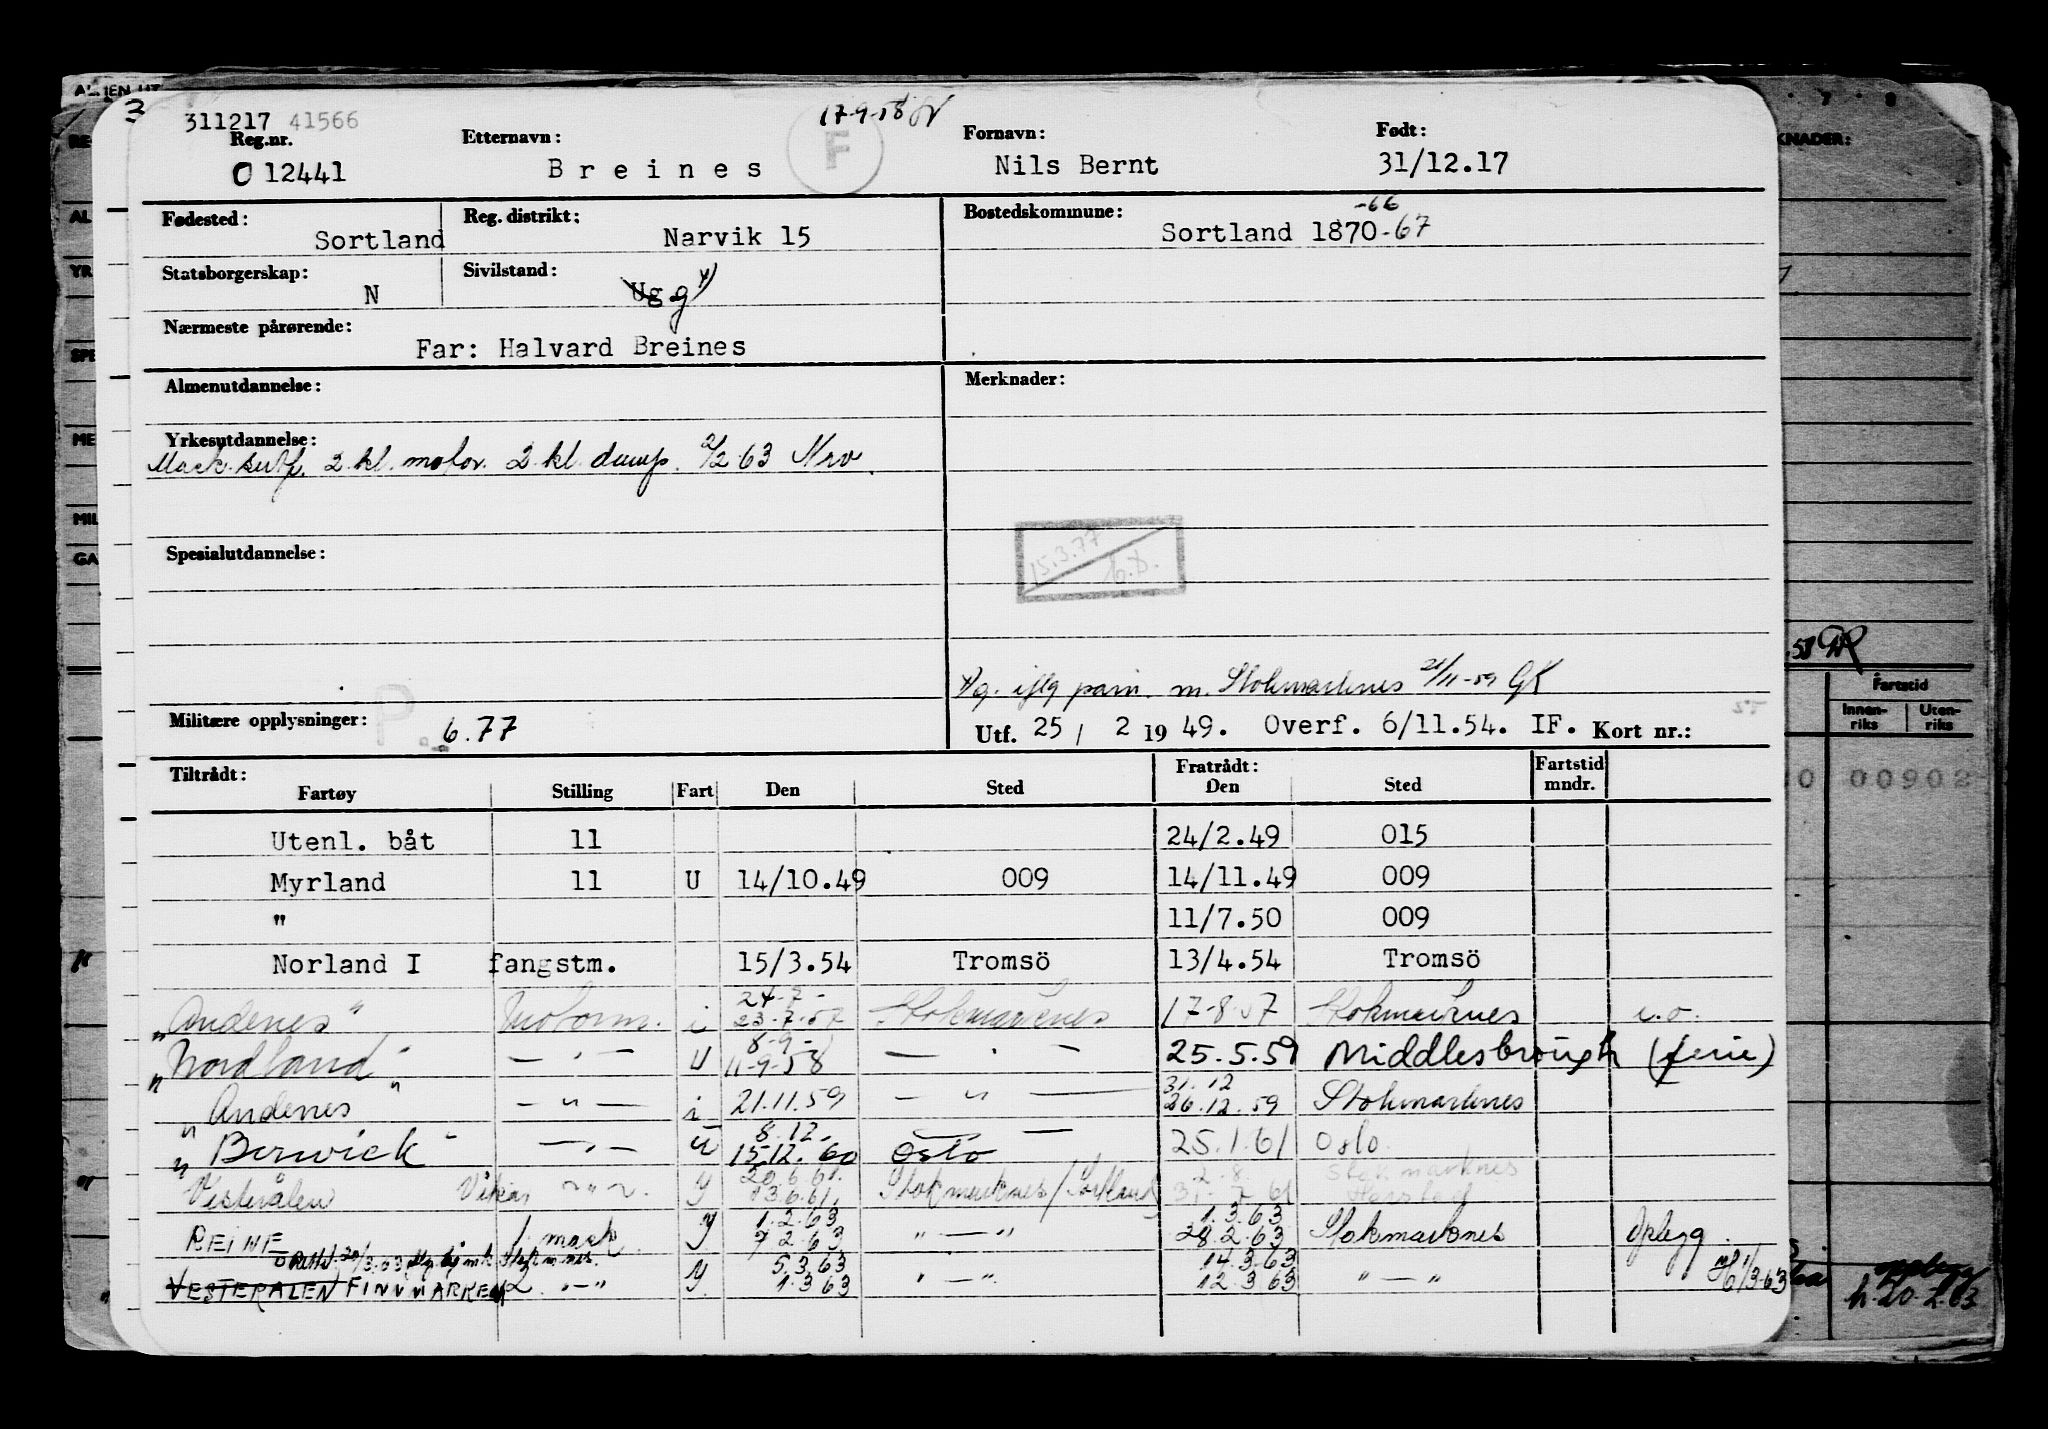 3
311217 41566
17-9-58
Reg.nr.
Etternavn:
F
Fornavn:
Født:
O 12441
Breines
Nils Bernt
31/12.17
Fødested:
Reg. distrikt:
Bostedskommune:
-66
Sortland
Narvik 15
Sortland 1870-67
Statsborgerskap:
Sivilstand:
N
Ug g x)
Nærmeste pårørende:
Far: Halvard Breines
Almenutdannelse:
Merknader:
Yrkesutdannelse:
Mask.sertf. 2.kl. motor. 2 kl. damp. 2/2.63 Nrv.
Spesialutdannelse:
15.3.77
x) g. iflg påm. m. Stokmarknes 21/11-59 GK
Militære opplysninger:
P.
6.77
Utf. 25 / 2 1949. Overf. 6/11.54. IF. Kort nr.:
Tiltrådt:
Fratrådt:
Fartstid
Fartøy Stilling Fart Den Sted Den Sted mndr.
Utenl. båt 11 24/2.49 015
Myrland 11 U 14/10.49 009 14/11.49 009
" 11/7.50 009
Norland I fangstm. 15/3.54 Tromsö 13/4.54 Tromsö
24-7-
"Andenes" Motorm. i 23-7-57 Stokmarknes 17-8-57 Stokmarknes u.o.
8-9-
"Nordland" — " — U 11-9-58 — " — 25.5.59 Middlesbrough (ferie)
31.12
"Andenes" — " — i 21.11.59 — " — 26.12.59 Stokmarknes
8.12.
"Berwick" — " — U 15.12.60 Oslo 25.1.61 Oslo.
20.6.61. 2-8. Stokmarknes
Vesterålen Vikar — " — y 13.6.61. Stokmarknes/Sortland 31-7 61 Harstad
1.2.63 1.3.63
REINE 1. mask. y 7 2 63 " — " 28.2.63 Stokmarknes Oplegg.
5.3.63 14.3.63
VESTERALEN FINNMARKEN 2. — " — y 1.3 63 " — " 12.3 63 " — " 1/3-63
KNADER:
Fartstid
Innenriks
Utenriks
00902
h. 20.2.63